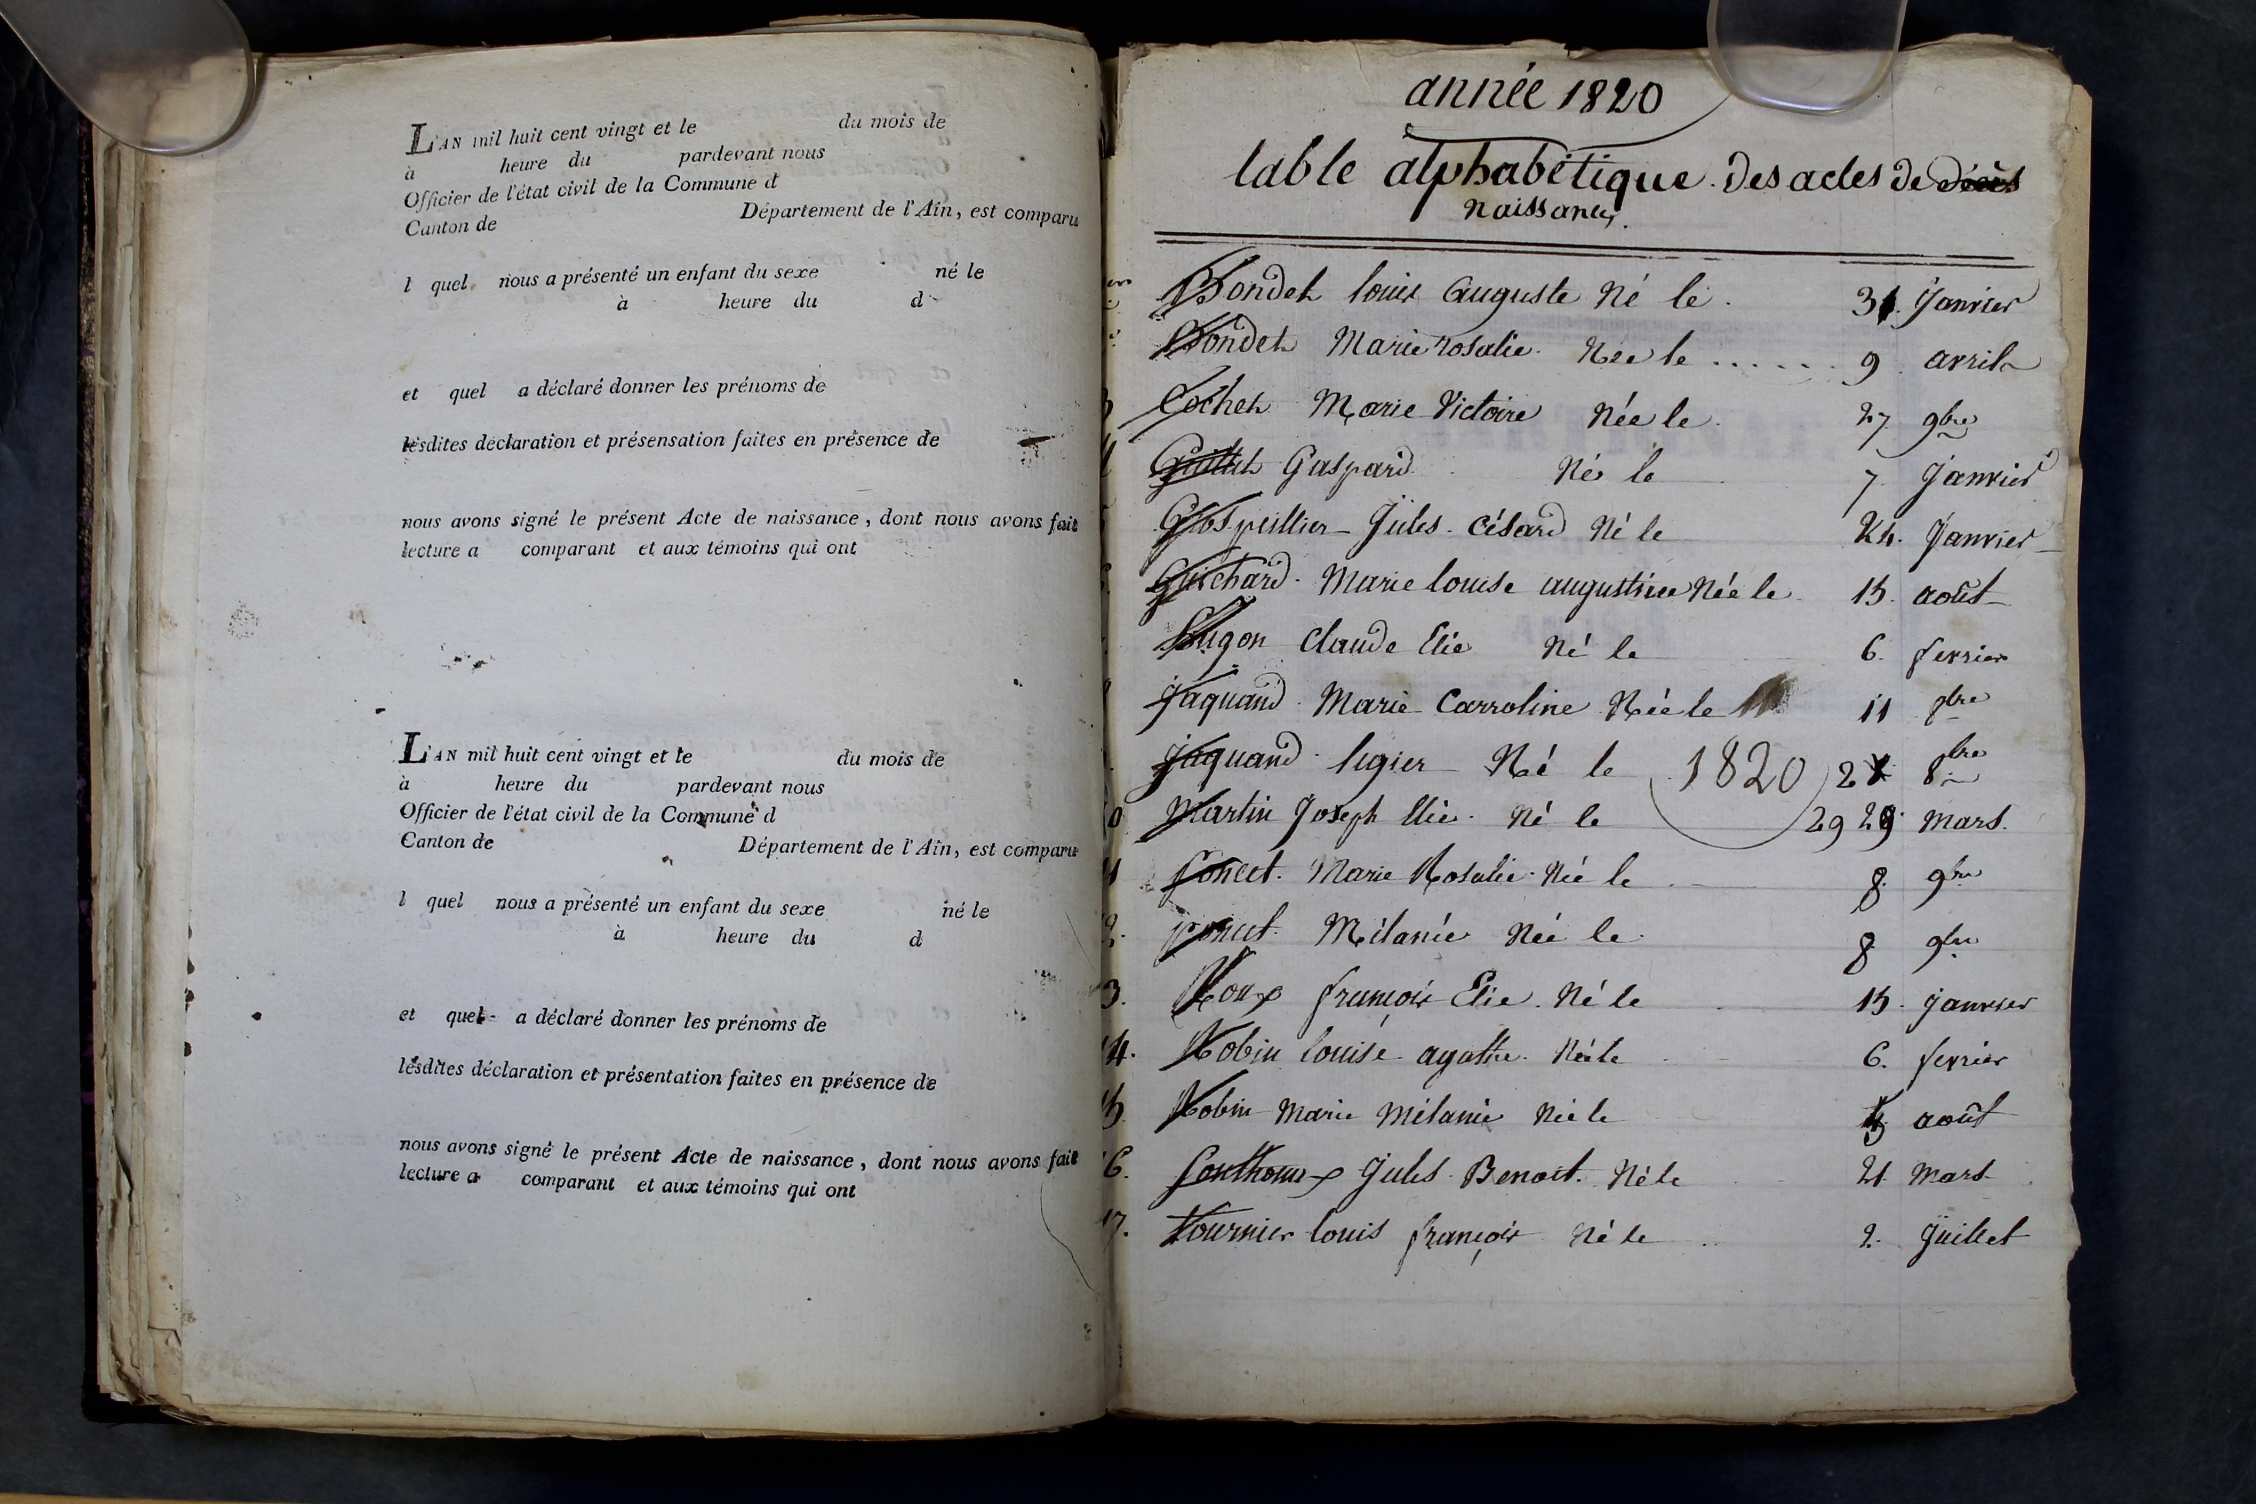 L'AN mil huit cent vingt et le du mois de
à heure du pardevant nous
Officier de l'état civil de la Commune d
Canton de Département de l'Ain, est comparu
l quel nous a présenté un enfant du sexe né le
à heure du d
et quel a déclaré donner les prénoms de
lesdites déclaration et présensation faites en présence de
nous avons signé le présent Acte de naissance, dont nous avons fait
lecture a comparant et aux témoins qui ont
L'AN mil huit cent vingt et le du mois de
à heure du pardevant nous
Officier de l'état civil de la Commune d
Canton de Département de l'Ain, est comparu
l quel nous a présenté un enfant du sexe né le
à heure du d
et quel a déclaré donner les prénoms de
lesdites déclaration et présentation faites en présence de
nous avons signé le présent Acte de naissance, dont nous avons fait
lecture a comparant et aux témoins qui ont
année 1820
table alphabétique des actes de décès
naissance.
Bondet louis Auguste Né le 31 Janvier
Bondet Marie rosalie Née le ...... 9 avril
Cochet Marie Victoire Née le 27 9bre
Gaspard Né le 7 Janvier
Jules Césard Né le 24. Janvier
Guichard Marie louise augustine Née le 15 août
Hugon Claude Elie Né le 6. fevrier
Jaquand Marie Carroline Née le 11
Jaquand ligier Né le 1820 8bre
10 Martin Joseph Elie Né le 29 29 Mars.
11 Poncet Marie Rosalie Née le 8 9bre
Poncet Mélanie Née le 8 9bre
3. Roux françois Elie Né le 15 janvier
14. Robin louise agathe Née le 6. fevrier
15. Robin Marie Mélanie Née le août
16. Southoux Jules Benoit. Né le 21 Mars
17. Tournier louis françois Né le 2. Juillet